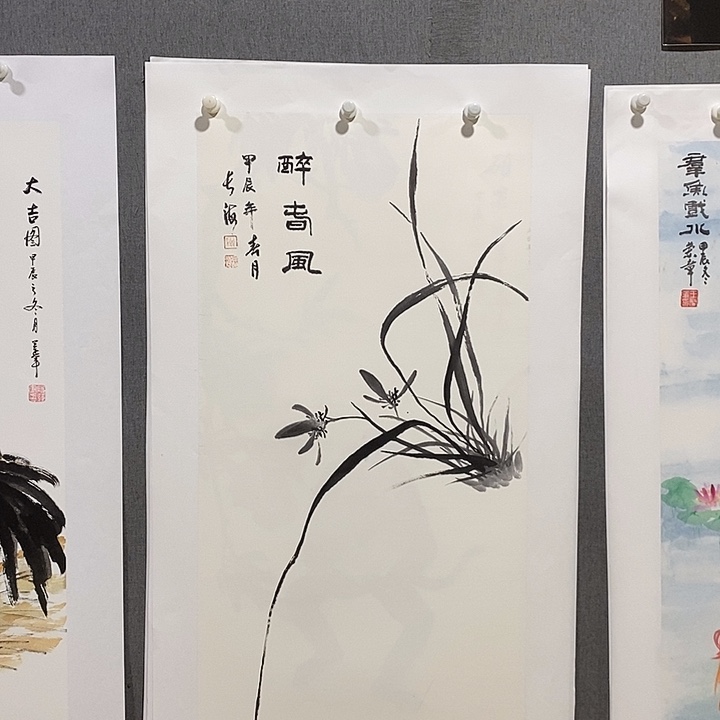 大吉图 甲辰之冬月
醉春風
甲辰年春月
长海
羣魚戲水
甲辰冬